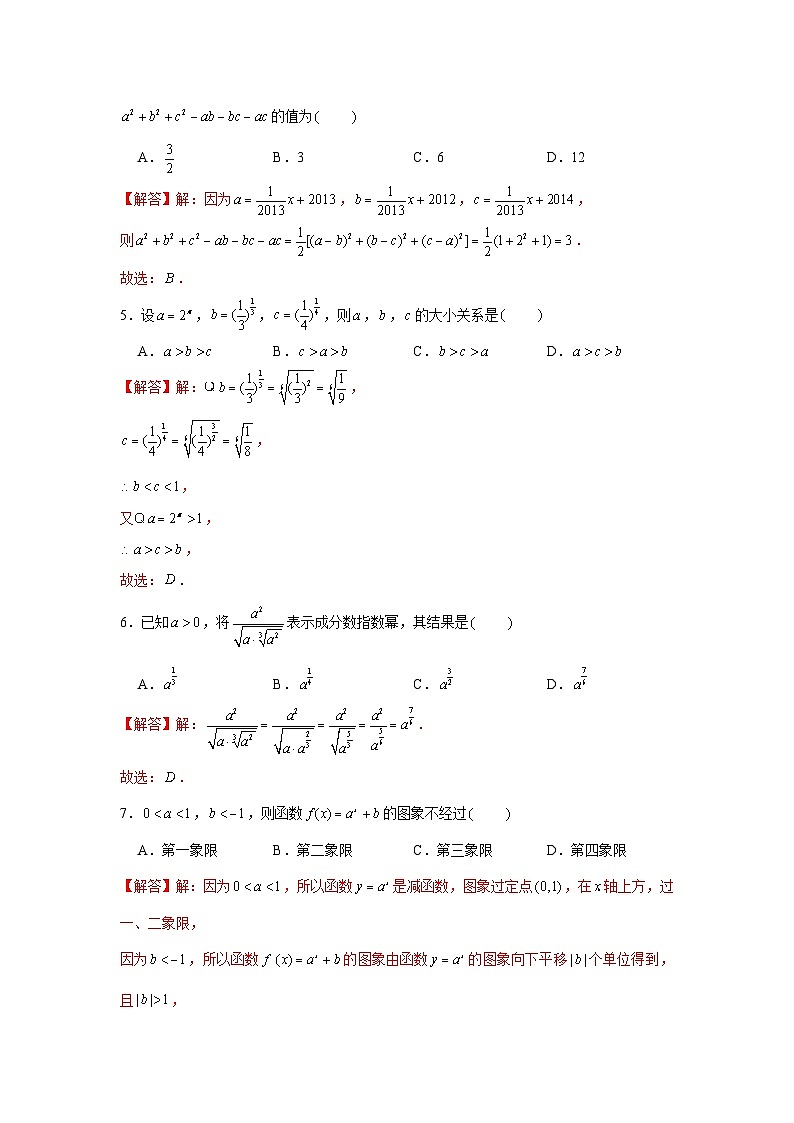 a² + b² + c² − ab − bc − ac 的值为(　　)
A. 3/2　B. 3　C. 6　D. 12
【解答】解：因为 a = 1/2013 x + 2013，b = 1/2013 x + 2012，c = 1/2013 x + 2014，
则 a² + b² + c² − ab − bc − ac = 1/2[(a − b)² + (b − c)² + (c − a)²] = 1/2(1 + 2² + 1) = 3．
故选：B．
5．设 a = 2^π，b = (1/3)^(1/3)，c = (1/4)^(1/4)，则 a，b，c 的大小关系是(　　)
A. a > b > c　B. c > a > b　C. b > c > a　D. a > c > b
【解答】解：Q b = (1/3)^(1/3) = ⁶√((1/3)²) = ⁶√(1/9)，
c = (1/4)^(1/4) = ⁶√((1/4)^(3/2)) = ⁶√(1/8)，
∴ b < c < 1，
又Q a = 2^π > 1，
∴ a > c > b，
故选：D．
6．已知 a > 0，将 a²/√(a·³√(a²)) 表示成分数指数幂，其结果是(　　)
A. a^(1/3)　B. a^(1/4)　C. a^(3/2)　D. a^(7/6)
【解答】解：a²/√(a·³√(a²)) = a²/√(a·a^(2/3)) = a²/√(a^(5/3)) = a²/a^(5/6) = a^(7/6)．
故选：D．
7．0 < a < 1，b < −1，则函数 f(x) = a^x + b 的图象不经过(　　)
A．第一象限　B．第二象限　C．第三象限　D．第四象限
【解答】解：因为 0 < a < 1，所以函数 y = a^x 是减函数，图象过定点 (0,1)，在 x 轴上方，过
一、二象限，
因为 b < −1，所以函数 f (x) = a^x + b 的图象由函数 y = a^x 的图象向下平移 | b | 个单位得到，
且 | b | > 1，